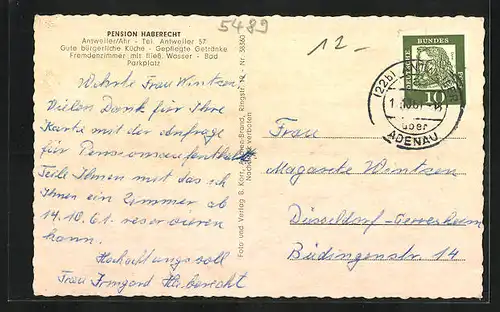 5489
12 -
PENSION HABERECHT
Antweiler/Ahr - Tel. Antweiler 57
Gute bürgerliche Küche - Gepflegte Getränke
Fremdenzimmer mit fließ. Wasser - Bad
Parkplatz
Wehrte Frau Wintzen
Vielen Dank für Ihre
Karte mit der Anfrage
für Pensionsaufenthalt
Teile Ihnen mit das ich
Ihnen ein Zimmer ab
14.10.61. reservieren
kann.
Hochachtungsvoll
Frau Irmgard Haberecht
Foto und Verlag B. Korr, Ringstr.
Nachdruck verboten
DEUTSCHE BUNDESPOST
10
(22b)
über
ADENAU
Frau
Margarete Wintzen
Düsseldorf-Gerresheim
Büdingenstr. 14